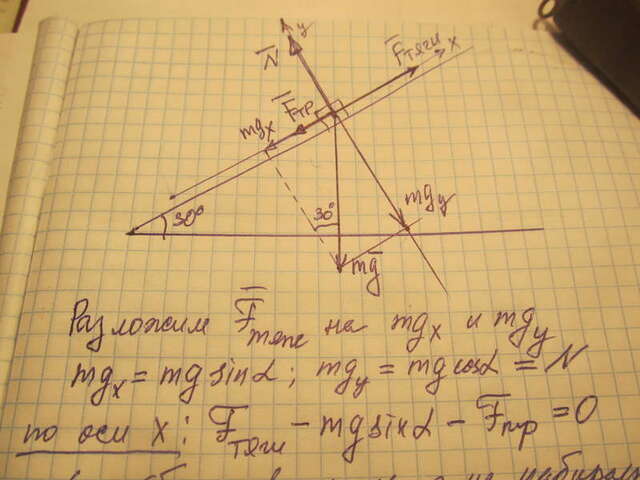 y
N̅
F̅тяги
x
F̅тр
mgx
30°
30°
mgy
mg̅
Разложим F̅тяж на mgx и mgy
mgx = mg sinα; mgy = mg cosα = N
по оси X: F̅тяги - mg sinα - F̅тр = 0
набирает